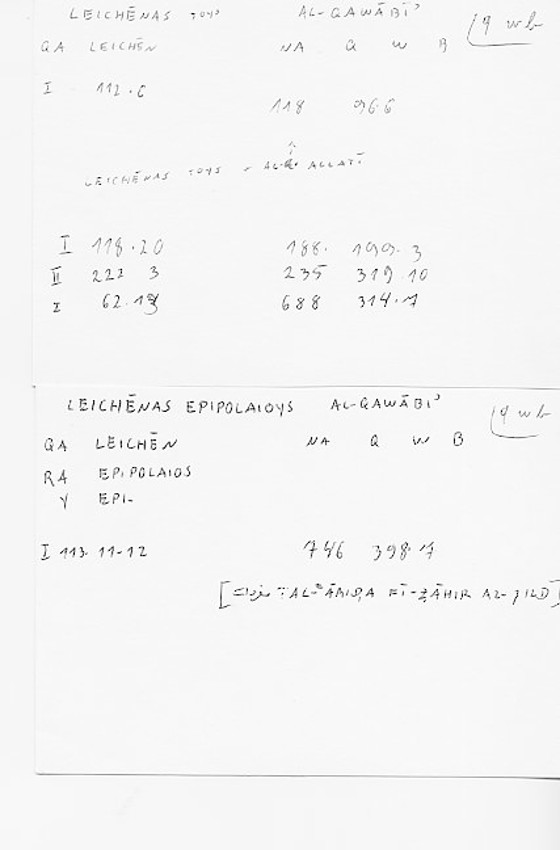 LEICHĒNAS TOYS AL-QAWĀBĪʾ q wb
QA LEICHĒN NA Q W B
I 112.6
118 966
LEICHĒNAS TOYS - ALLATĪ
I 118.20 188. 199.3
II 222 3 235 319.10
I 62. 688 314.7
LEICHĒNAS EPIPOLAIOYS AL-QAWĀBĪʾ q wb
QA LEICHĒN NA Q W B
RA EPIPOLAIOS
Y EPI-
I 113. 11-12 746 398.7
FĪ ẒĀHIR AL-ǦILD